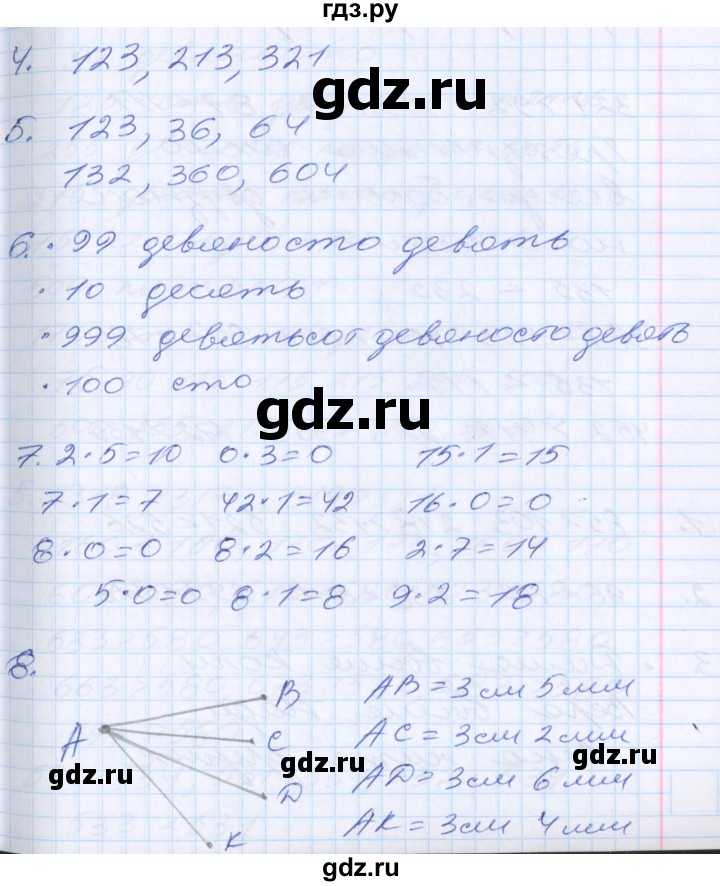 гдз.ру
4. 123, 213, 321
gdz.ru
5. 123, 36, 64
132, 360, 604
6. · 99 девяносто девять
· 10 десять
· 999 девятьсот девяносто девять
· 100 сто
gdz.ru
7. 2·5=10 0·3=0 15·1=15
7·1=7 42·1=42 16·0=0
8·0=0 8·2=16 2·7=14
5·0=0 8·1=8 9·2=18
8.
B AB=3см 5мм
A C AC=3см 2мм
gdz.ru gdz.ru gdz.ru
D AD=3см 6мм
K AK=3см 4мм
gdz.ru gdz.ru
gdz.ru